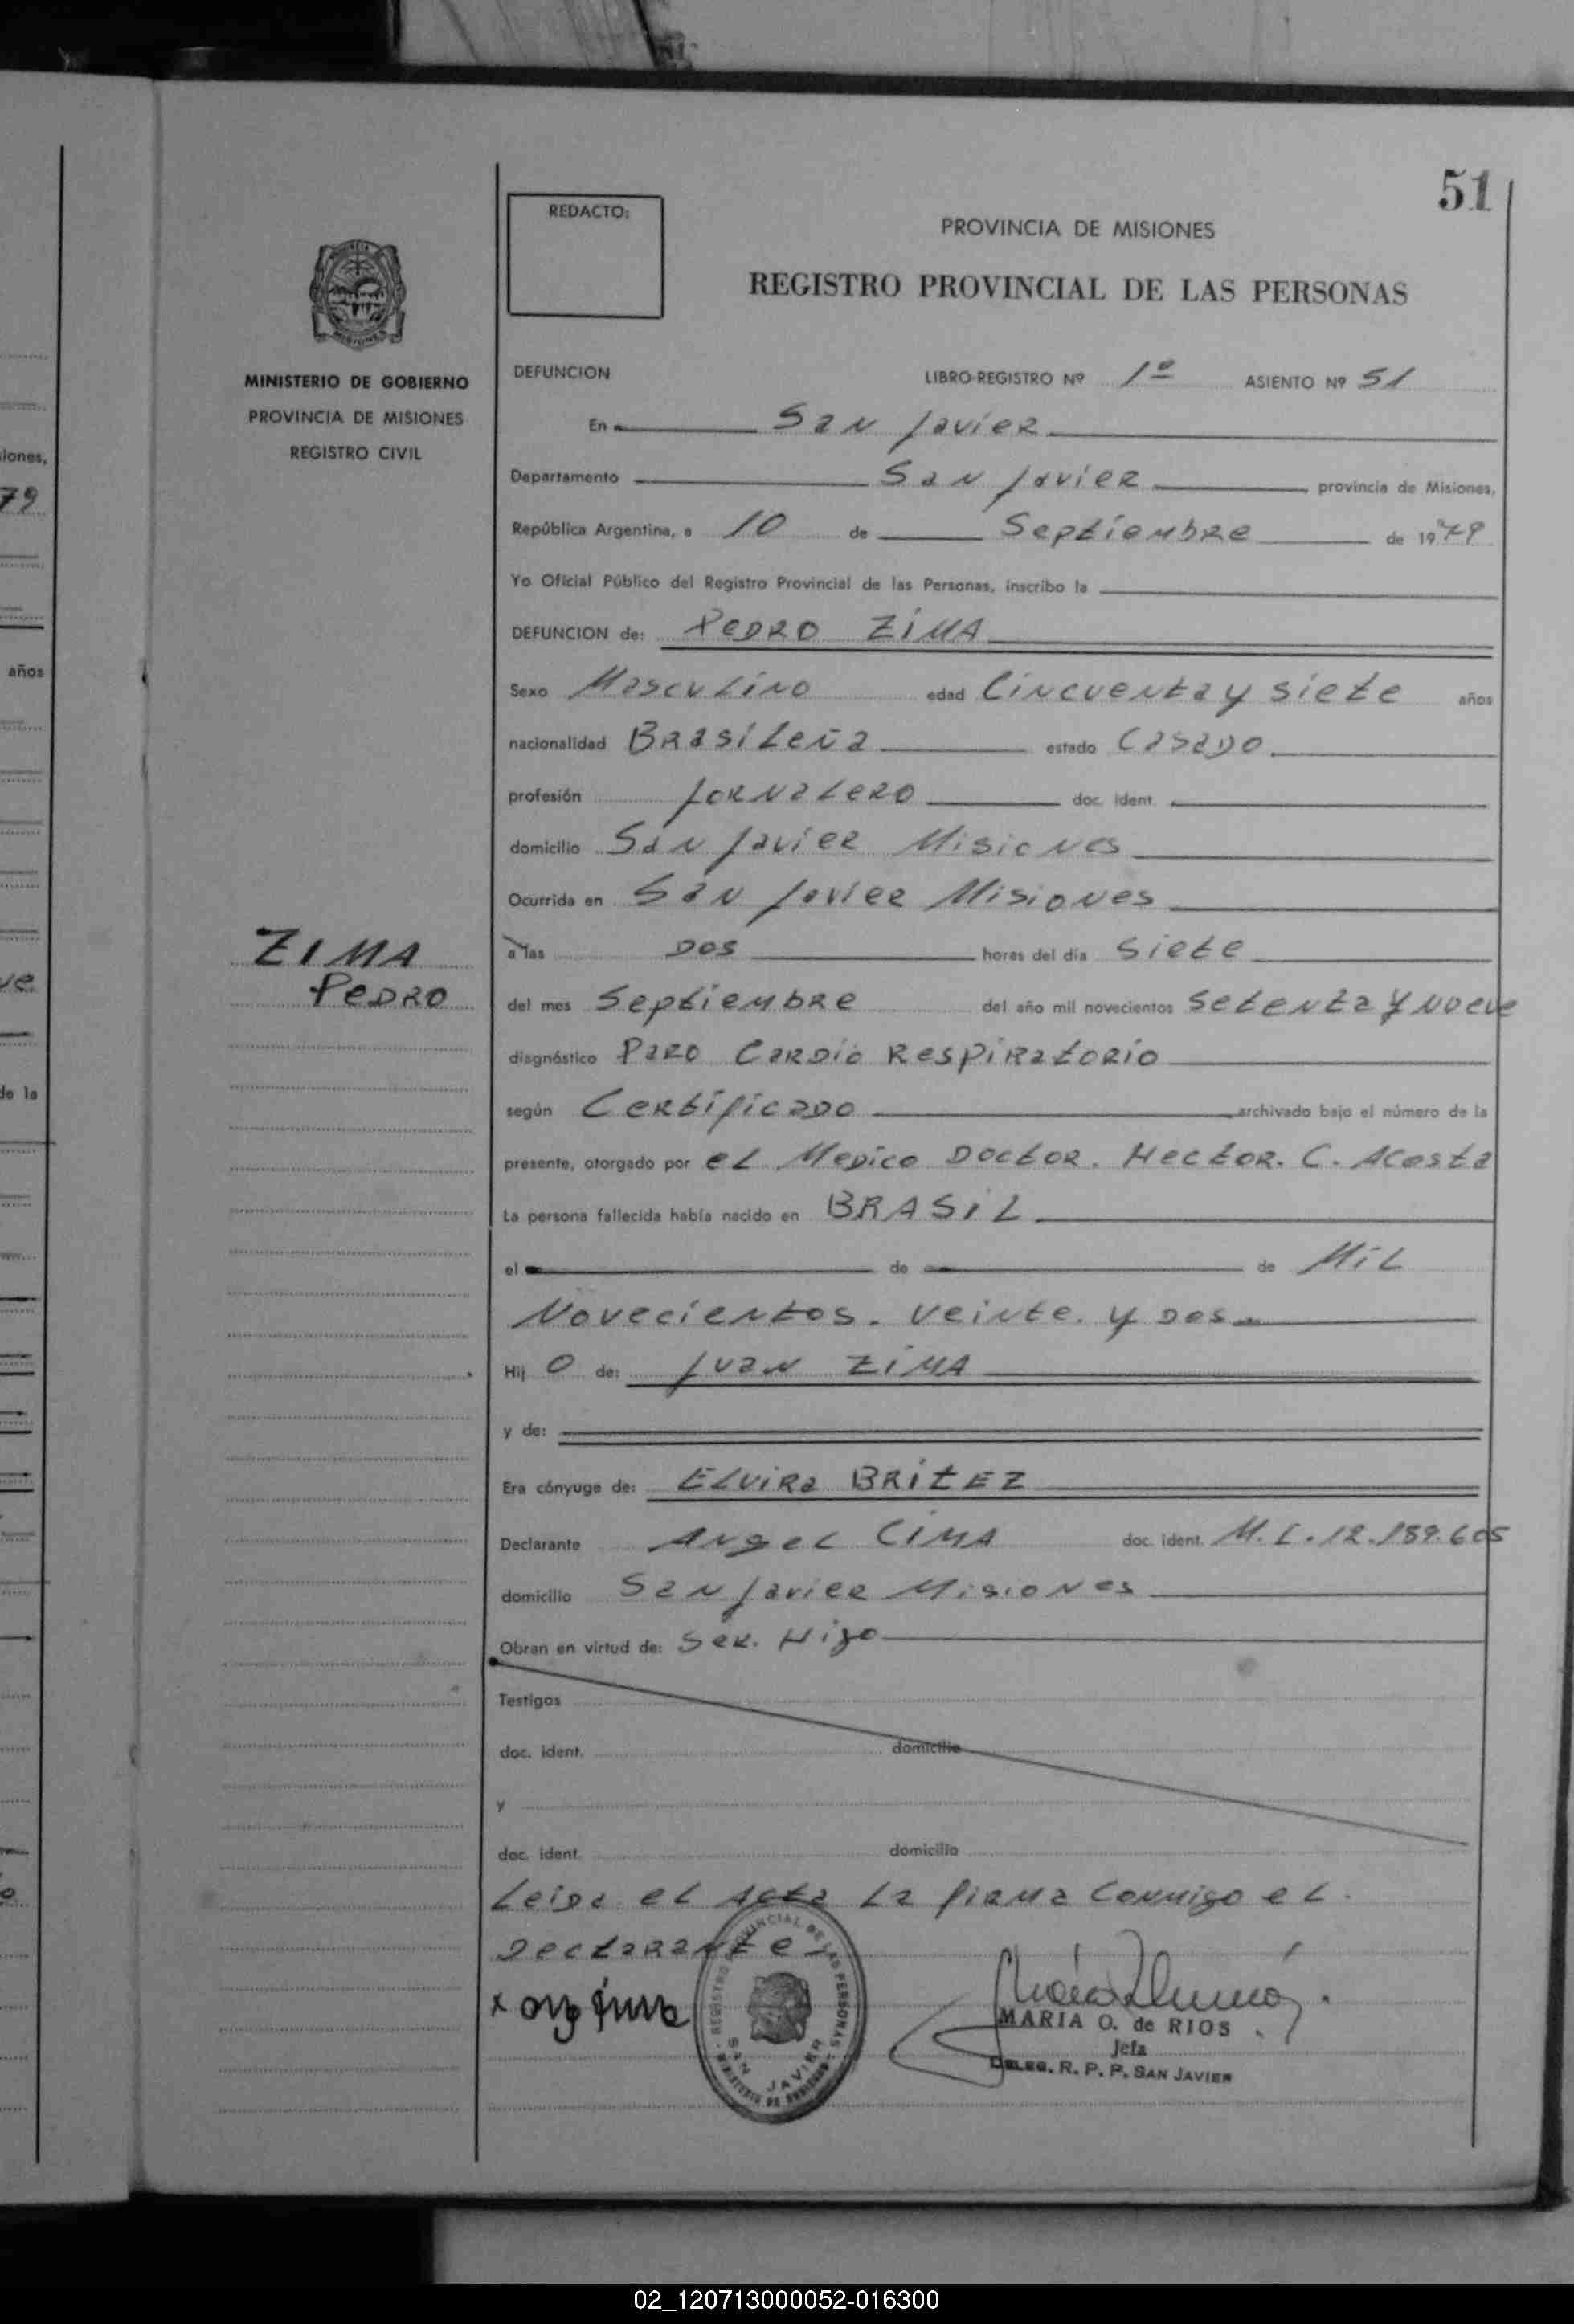 51
REDACTO:
PROVINCIA DE MISIONES
REGISTRO PROVINCIAL DE LAS PERSONAS
MINISTERIO DE GOBIERNO
PROVINCIA DE MISIONES
REGISTRO CIVIL
DEFUNCION LIBRO-REGISTRO Nº 1º ASIENTO Nº 51
En San Javier
Departamento San Javier provincia de Misiones,
República Argentina, a 10 de Septiembre de 1979
Yo Oficial Público del Registro Provincial de las Personas, inscribo la
DEFUNCION de: PEDRO ZIMA
Sexo Masculino edad Cincuenta y siete años
nacionalidad Brasileña estado Casado
profesión Jornalero doc. ident.
domicilio San Javier Misiones
Ocurrida en San Javier Misiones
ZIMA
PEDRO
a las Dos horas del día Siete
del mes Septiembre del año mil novecientos Setenta y Nueve
diagnóstico Paro Cardio Respiratorio
según Certificado archivado bajo el número de la
presente, otorgado por el Medico Doctor. Hector. C. Acosta
La persona fallecida había nacido en BRASIL
el de de Mil
Novecientos. Veinte. y Dos
Hij o de: Juan ZIMA
y de:
Era cónyuge de: Elvira BRITEZ
Declarante Angel CIMA doc. ident. M.I. 12.189.605
domicilio San Javier Misiones
Obran en virtud de: Ser. Hijo
Testigos
doc. ident. domicilio
y
doc. ident. domicilio
Leida el Acta La firma Conmigo el.
Declarante
REGISTRO PROVINCIAL DE LAS PERSONAS
SAN JAVIER
MINISTERIO DE GOBIERNO
MARIA O. de RIOS
Jefa
DELEG. R. P. P. SAN JAVIER
iones,
79
años
ve
de la
02_120713000052-016300